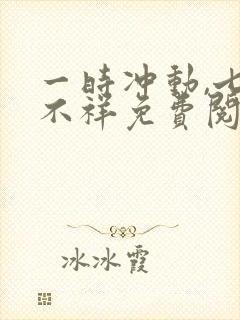 一時冲動,七
不祥免費閱
冰冰霞